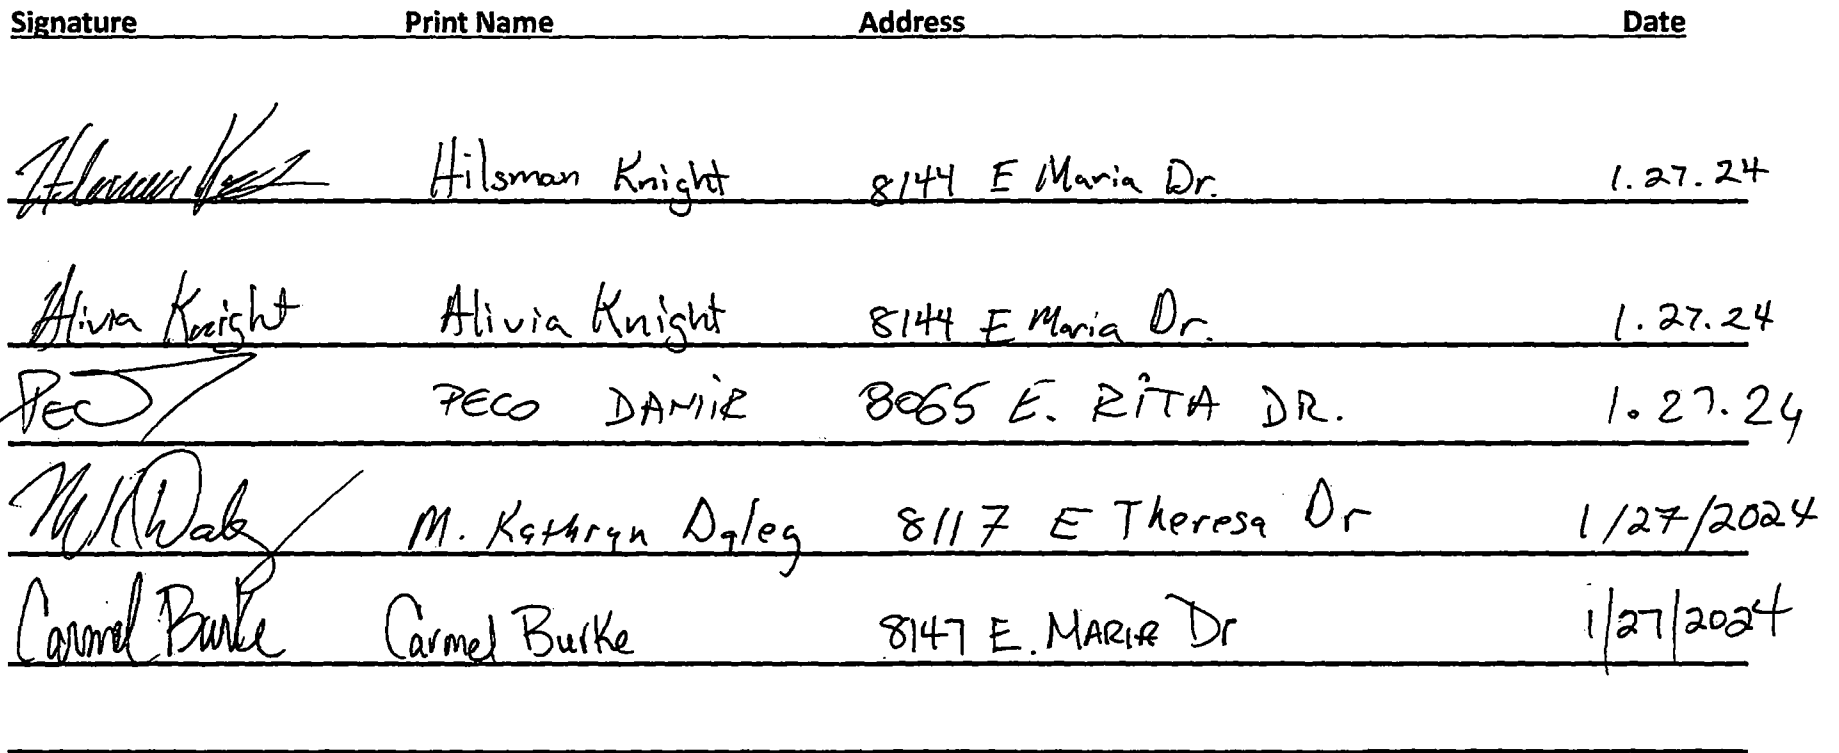 Signature Print Name Address Date
Hilsman Knight Hilsman Knight 8144 E Maria Dr. 1.27.24
Alivia Knight Alivia Knight 8144 E Maria Dr. 1.27.24
PECO DAMIR 8065 E. RITA DR. 1.27.24
M. Kathryn Daley 8117 E Theresa Dr 1/27/2024
Carmel Burke Carmel Burke 8147 E. MARIA Dr 1/27/2024